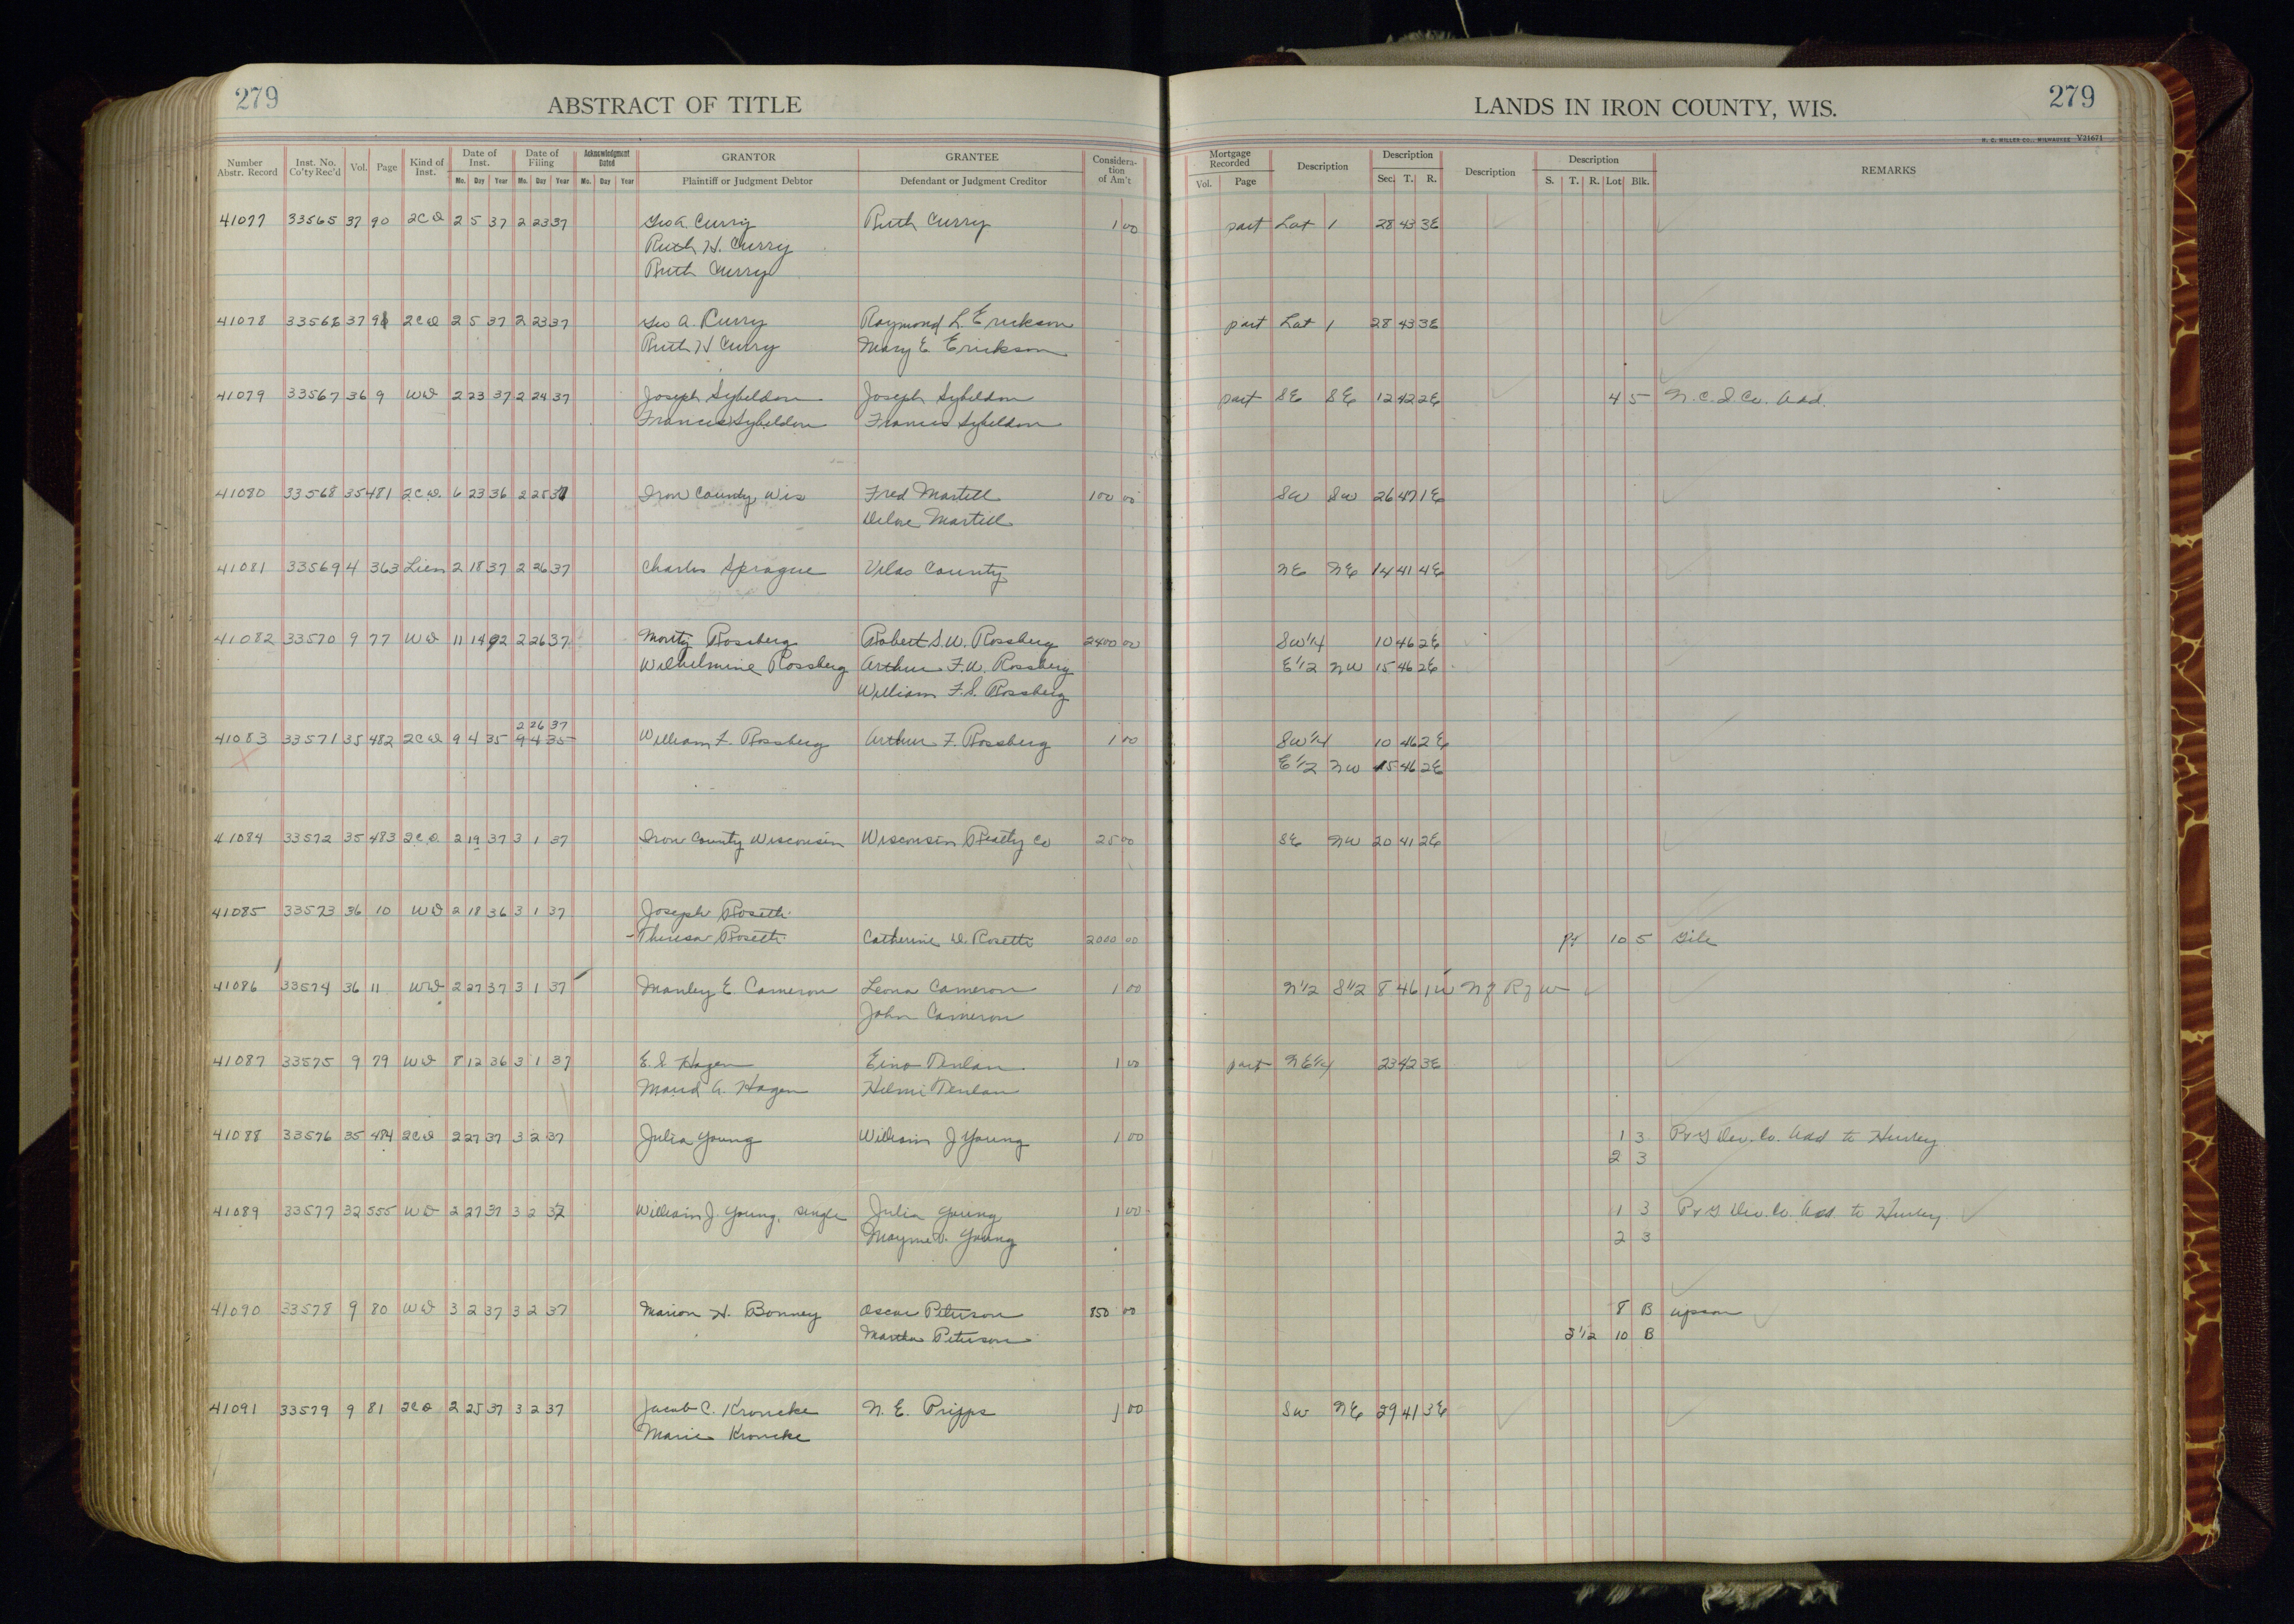 279 ABSTRACT OF TITLE LANDS IN IRON COUNTY, WIS. 279
H. C. MILLER CO., MILWAUKEE V21671
Number Abstr. Record Inst. No. Co'ty Rec'd Vol. Page Kind of Inst. Date of Inst. Mo. Day Year Date of Filing Mo. Day Year Acknowledgment Dated Mo. Day Year GRANTOR Plaintiff or Judgment Debtor GRANTEE Defendant or Judgment Creditor Considera-tion of Am't Mortgage Recorded Vol. Page Description Description Sec. T. R. Description Description S. T. R. Lot Blk. REMARKS
41077 33565 37 90 2CD 2 5 37 2 23 37 Geo A. Curry Ruth Curry 1 00 part Lot 1 28 43 3E
Ruth H. Curry
Ruth Curry
41078 33566 37 91 2CD 2 5 37 2 23 37 Geo A. Curry Raymond L. Erickson part Lot 1 28 43 3E
Ruth H Curry Mary E Erickson
41079 33567 36 9 WD 2 23 37 2 24 37 Joseph Sybeldon Joseph Sybeldon part SE SE 12 42 2E 4 5 N. C. I Co. Add.
Frances Sybeldon Frances Sybeldon
41080 33568 35 481 2CD. 6 23 36 2 25 37 Iron County, Wis Fred Martell 100 00 SW SW 26 47 1E
Martell
41081 33569 4 363 Lien 2 18 37 2 26 37 Charles Sprague Vilas County NE NE 14 41 4E
41082 33570 9 77 WD 11 14 92 2 26 37 Moritz Rossberg Robert S. W. Rossberg 2400 00 SW 1/4 10 46 2E
Wilhelmine Rossberg Arthur F. W. Rossberg E 1/2 NW 15 46 2E
William F. S. Rossberg
2 26 37
41083 33571 35 482 2CD 9 4 35 9 4 35 William F. Rossberg Arthur F. Rossberg 1 00 SW 1/4 10 46 2E
E 1/2 NW 15 46 2E
41084 33572 35 483 2CD. 2 19 37 3 1 37 Iron County Wisconsin Wisconsin Realty Co 25 00 SE NW 20 41 2E
41085 33573 36 10 WD 2 18 36 3 1 37 Joseph Rosetti
Theresa Rosetti Catherine D. Rosetti 2000 00 pt 10 5 Gile
41086 33574 36 11 WD 2 27 37 3 1 37 Manley E. Cameron Leona Cameron 1 00 N 1/2 S 1/2 8 46 1W N of R of W
John Cameron
41087 33575 9 79 WD 8 12 36 3 1 37 E. S Hagen Eino Tenlan 1 00 part NE 1/4 23 42 3E
Maud A. Hagen Hilmi Tenlan
41088 33576 35 484 2CD 2 27 37 3 2 37 Julia Young William J Young 1 00 1 3 P & G Dev. Co. Add to Hurley
2 3
41089 33577 32 555 WD 2 27 37 3 2 37 William J. Young, single Julia Young 1 00 1 3 P & G Dev. Co. Add. to Hurley
Mayme D. Young 2 3
41090 33578 9 80 WD 3 2 37 3 2 37 Marion H. Bonney Oscar Peterson 850 00 8 B Upson
Martha Peterson 1/2 10 B
41091 33579 9 81 2CD 2 25 37 3 2 37 Jacob C. Kroncke N. E. Pripps 1 00 SW NE 29 41 3E
Marie Kroncke